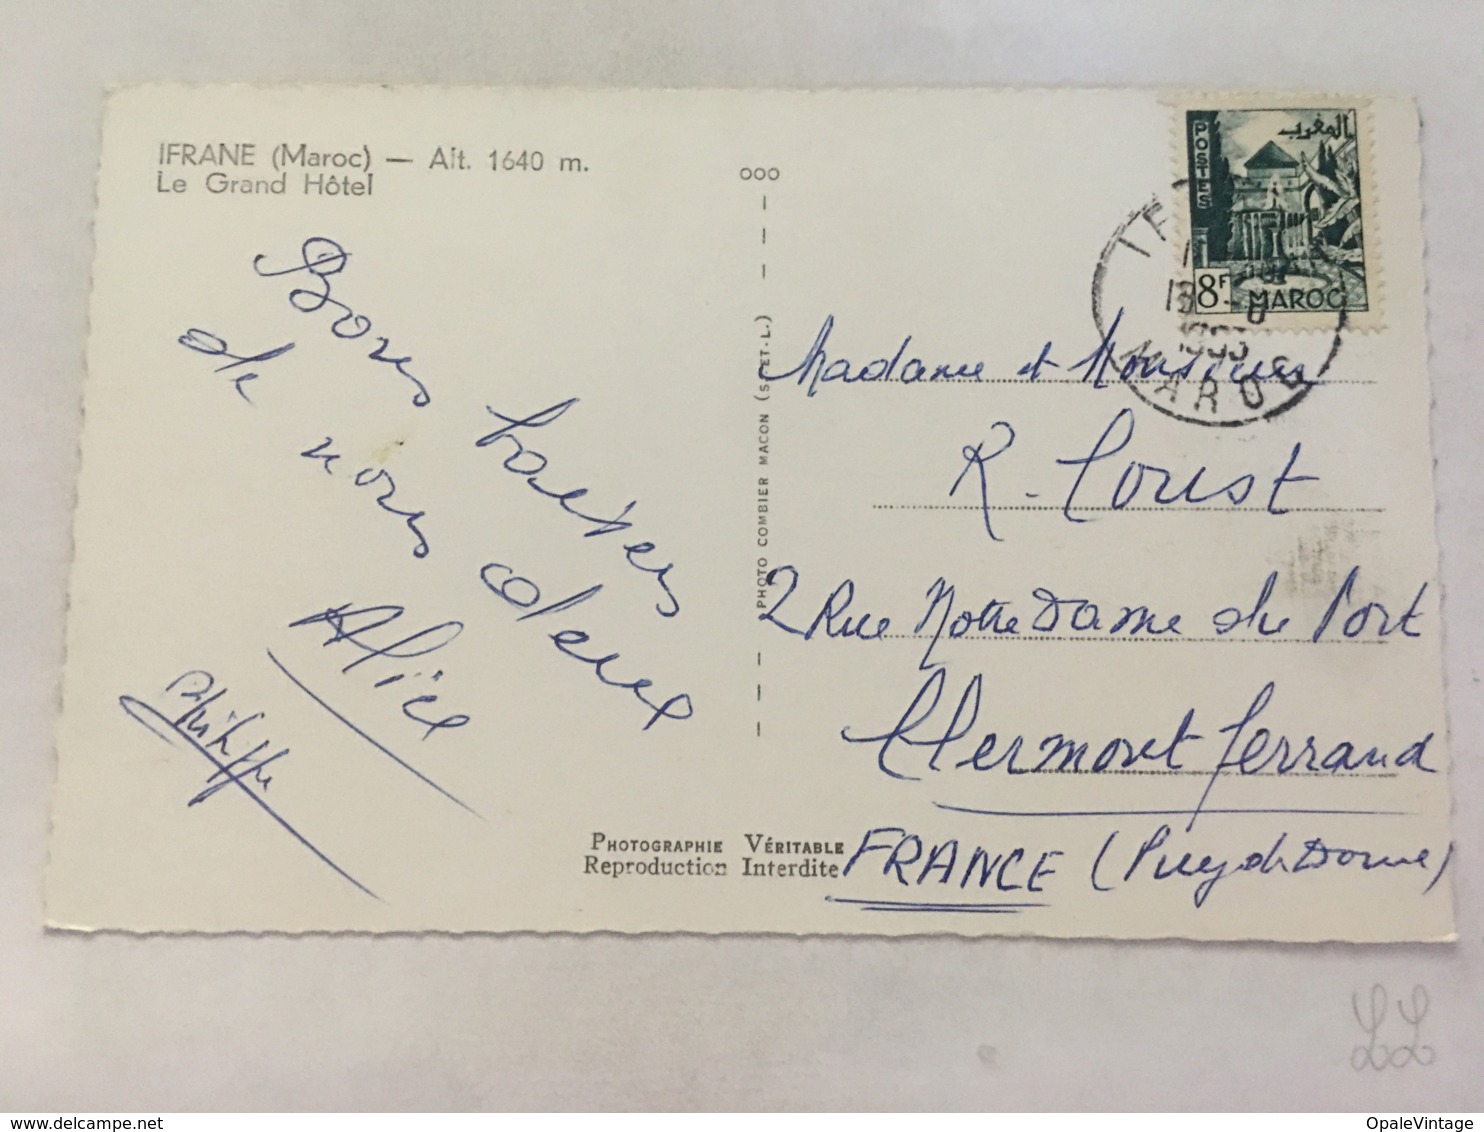 IFRANE (Maroc) — Alt. 1640 m.
Le Grand Hôtel
Bons baisers
de nous deux
Alice
Philippe
PHOTO COMBIER MACON (S.-ET-L.)
POSTES
المغرب
8F MAROC
MAROC
Madame et Monsieur
R. Coust
2 Rue Notre Dame du Port
Clermont Ferrand
FRANCE (Puy de Dome)
PHOTOGRAPHIE VÉRITABLE
Reproduction Interdite
delcampe.net
OpaleVintage